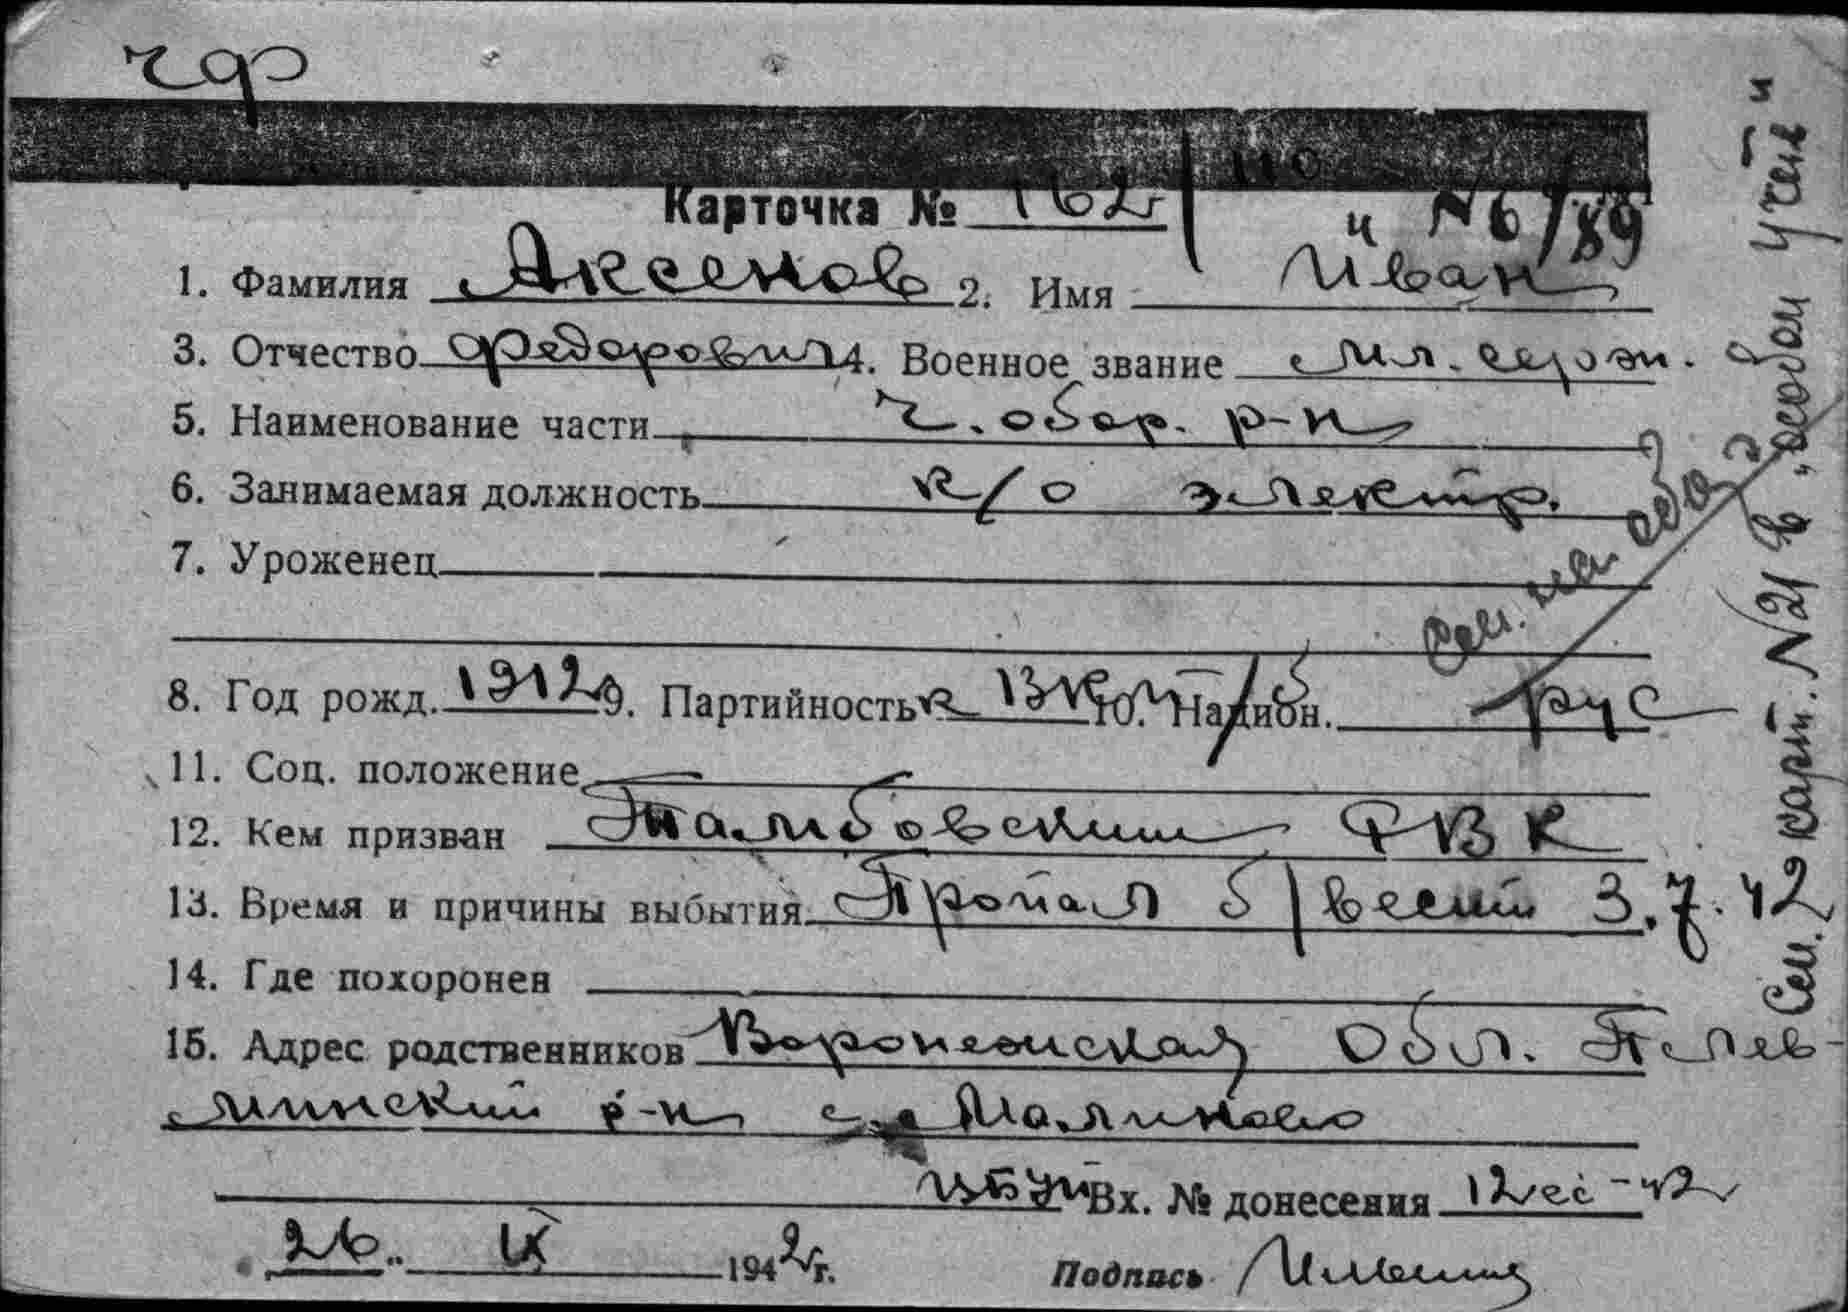 чф
Карточка № 162г
и № 6/89
1. Фамилия Аксенов 2. Имя Иван
3. Отчество Федорович 4. Военное звание мл. серж.
5. Наименование части ч. обор. р-н
6. Занимаемая должность к/о электр.
7. Уроженец
8. Год рожд. 1912 9. Партийность к ВКП/б 10. Национ. рус
11. Соц. положение
12. Кем призван Тамбовским РВК
13. Время и причины выбытия Пропал б/вести 3.7.42
14. Где похоронен
15. Адрес родственников Воронежская обл. Телев-
минский р-н с. Малиново
ЦБУП Вх. № донесения 12ес-42
26 IX 1942г.
Подпись
См. на обор.
См. 2 карт. № 21 в "особом учете"